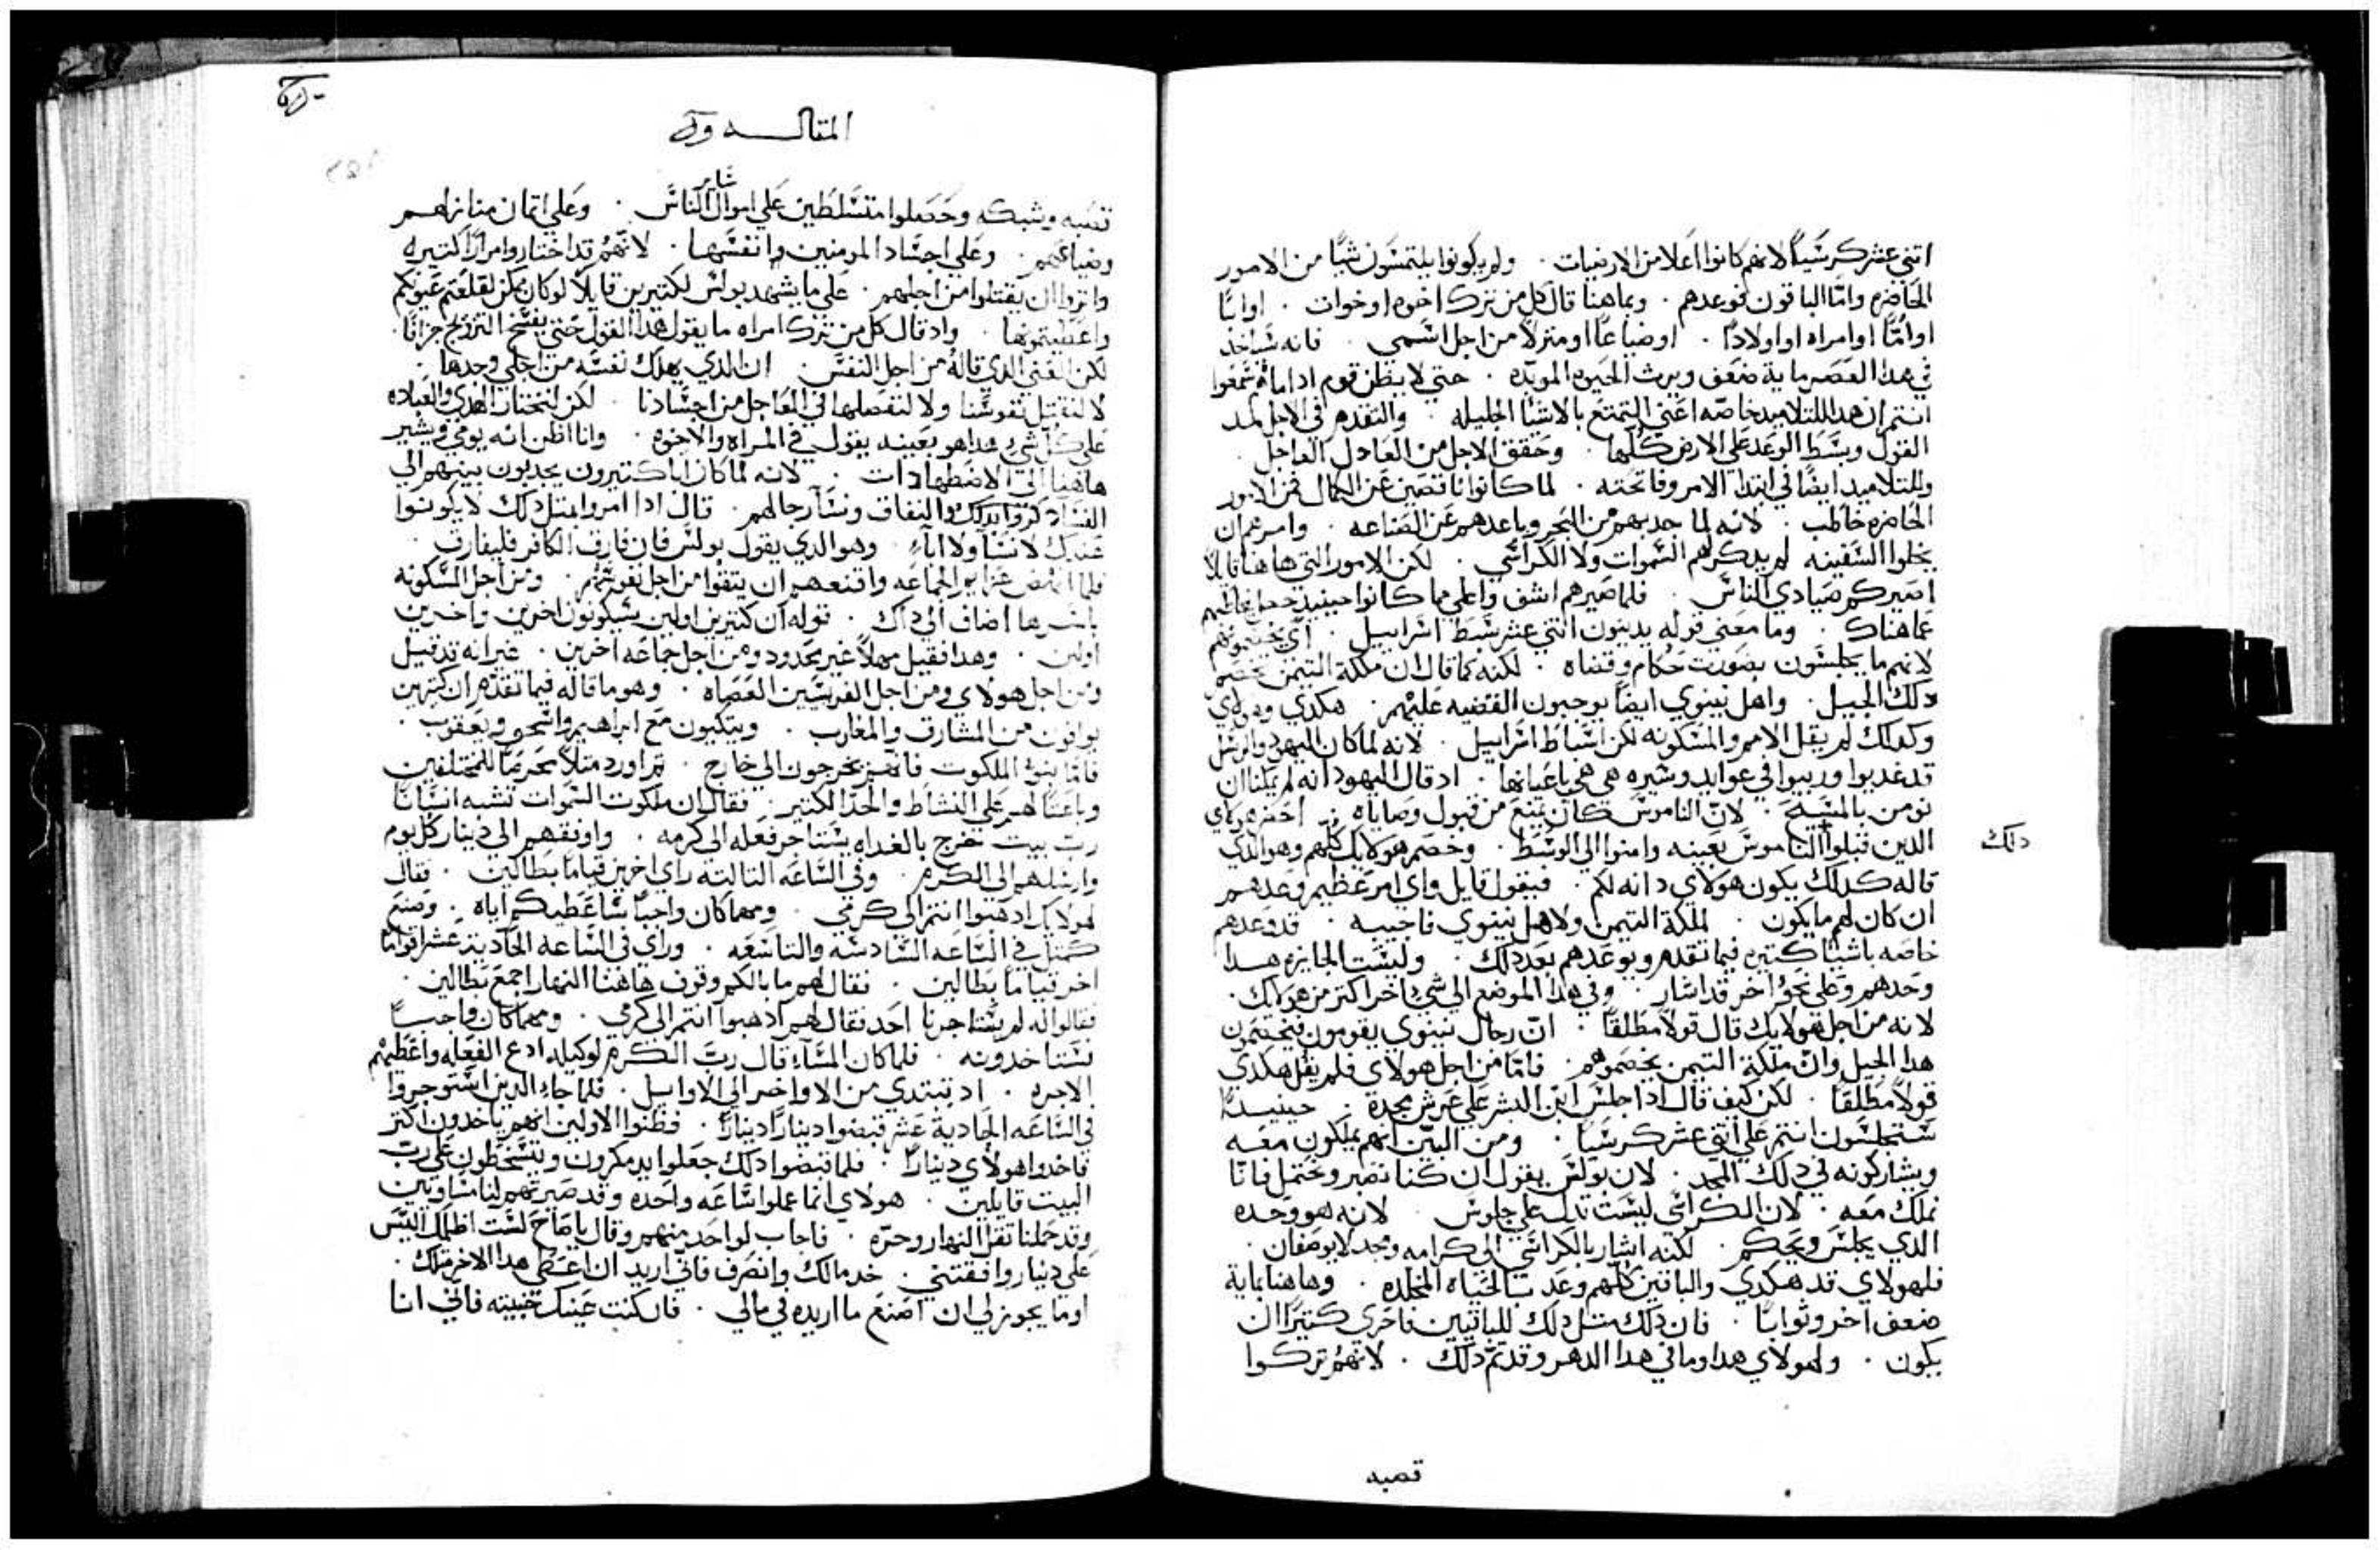 اتني عشر كرسيًا لانهم كانوا اعلا من الارضيات . ولم يكونوا يلتمسون شيًا من الامور
الحاضره واما الباقون فوعدهم . وبماهنا قال كل من ترك اخوه او خوات . او ابًا
او امًا او امراه او اولادًا . او ضياعًا او منزلًا من اجل اسمي . فانه سياخد
في هدا العصر ماية ضعف ويرث الحيوه الموبده . حتي لا يظن قوم ادا ما سمعوا
انتم ان هدا للتلاميد خاصه اعني التمتع بالاشيا الجليله . والتقدم في الاجل مد
القول وبسط الوعد علي الارض كلها . وحقق الاجل من العادل العاجل .
وللتلاميد ايضًا في ابتدا الامر وفاتحته . لما كانوا ناقصين عن الكمال فمن الامور
الحاضره خاطب . لانه لما جدبهم من البحر وباعدهم عن الصناعه . وامرهم ان
يخلوا السفينه لم يدكر لهم السموات ولا الكراسي . لكن الامور التي هاهنا قايلًا
اصيركم صيادي الناس . فلما صيرهم اشف واعلي مما كانوا حينيد جعل يخاطبهم
عما هناك . وما معني قوله يدينون اتني عشر سبط اسراييل . اي يخصمونهم
لانهم ما يجلسون بصورت حكام وقضاه . لكنه كما قال ان ملكة التيمن تخصم
دلك الجيل . واهل نينوي ايضًا يوجبون القضيه عليهم . هكدي وهولاي
وكدلك لم يقل الامم والمسكونه لكن اسباط اسراييل . لانه لما كان اليهود والرسل
قد غدبوا وربيوا في عوايد وسيره هي هي باعيانها . اد قال اليهود انه لم يمكنا ان
نومن بالمسيح . لان الناموس كان يمنع من قبول وصاياه . احضر هولاي
الدين قبلوا الناموس بعينه وامنوا الي الوسط . وخصم هولايك كلهم وهو الدي
دلك
قاله كدلك يكون هولاي دانه لكم . فيقول قايل واي امر عظيم وعدهم
ان كان لهم ما يكون . لملكة التيمن ولاهل نينوي فاجيبه . قد وعدهم
خاصه باشيا كتيره فيما تقدم ويوعدهم بعد دلك . وليست الجايزه هدا
وحدهم وعلي نحو اخر قد اشار . وفي هدا الموضع الي شي اخر اكتر من هولايك .
لانه من اجل هولايك قال قولًا مطلقًا . ان رجال نينوي يقومون فيخصمون
هدا الجيل وان ملكة التيمن يخصموهم . فاما من اجل هولاي فلم يقل هكدي
قولًا مطلقًا . لكن كيف قال ادا جلس ابن البشر علي عرش مجده . حينيدًا
ستجلسون انتم علي اتني عشر كرسيًا . ومن البين انهم يملكون معه
ويشاركونه في دلك المجد . لان بولس يقول ان كنا نصبر ونحتمل فانا
نملك معه . لان الكراسي ليست تدل علي جلوس . لانه هو وحده
الدي يجلس ويحكم . لكنه اشار بالكراسي الي كرامه ومجد لا يوصفان .
فلهولاي قد هكدي والباقين كلهم وعد بالحياه المخلده . وهاهنا بماية
ضعف اخر وثوابًا . فان دلك مثل دلك للباقيين فاحري كتيرًا ان
يكون . ولهولاي هدا وما في هدا الدهر وقد تم دلك . لانهم تركوا
قصبه
المقاله
ساير
قصبه وشبكه وحصلوا متسلطين علي اموال الناس . وعلي اتمان منازلهم
وضياعهم . وعلي اجساد المومنين وانفسها . لانهم قد اختاروا مرارًا كتيره
واتروا ان يقتلوا من اجلهم . علي ما يشهد بولس لكتيرين قايلًا لو كان يمكن لقلعتم عيونكم
واعطيتموها . واد قال كل من ترك امراه ما يقول هدا القول حتي يفسخ التزويج جزافًا .
لكن المعني الدي قاله من اجل النفس . ان الدي يهلك نفسه من اجلي وجدها .
لا لنقتل نفوسنا ولا لنفصلها في العاجل من اجسادنا . لكن لنختار الهدي والعباده
علي كل شي هدا هو بعينه يقول في المراه والاخوه . وانا اظن انه يومي ويشير
هاهنا الي الاضطهادات . لانه لما كان ابا كتيرون يجدبون بنيهم الي
الفساد كفروا بدلك والنفاق ونسآ رجالهم . قال ادا امروا بمتل دلك لا يكونوا
عندك لا نسآ ولا ابآء . وهو الدي يقول بولس فان فارق الكافر فليفارق .
فلما انهض عزايم الجماعه واقنعهم ان يتقوا من اجل نفوسهم . ومن اجل المسكونه
باسرها اضاف الي داك . قوله ان كتيرين اولين سيكونون اخرين واخرين
اولين . وهدا فقيل مهملًا غير محدود ومن اجل جماعه اخرين . غير انه قد قيل
ومن اجل هولاي ومن اجل الفريسين العصاه . وهو ما قاله فيما تقدم ان كتيرين
يوافون من المشارق والمغارب . ويتكيون مع ابراهيم واسحق ويعقوب .
فاما بنوا الملكوت فانهم يخرجون الي خارج . تم اورد متلًا محرضًا للمتخلفين
وباعتًا لهم علي النشاط والحد الكتير . فقال ان ملكوت السموات تشبه انسانًا
رب بيت خرج بالغداه يستاجر فعله الي كرمه . واوفقهم الي دينار كل يوم
وارسلهم الي الكرم . وفي الساعه التالته راي اخرين قيامًا بطالين . فقال
لهولايك ادهبوا انتم الي كرمي . ومهما كان واجبًا ساعطيكم اياه . وصنع
كمتل في الساعه السادسه والتاسعه . وراي في الساعه الحادية عشر اقوامًا
اخر قيامًا بطالين . فقال لهم ما بالكم وقوف هاهنا النهار اجمع بطالين .
فقالوا له لم يستاجرنا احد فقال لهم ادهبوا انتم الي كرمي . ومهما كان واجبًا
فستاخدونه . فلما كان المسآء قال رب الكرم لوكيله ادع الفعله واعطيهم
الاجره . اد تبتدي من الاواخر الي الاوايل . فلما جاء الدين استوجروا
في الساعه الحادية عشر قبضوا دينارًا دينارًا . فظنوا الاولين انهم ياخدون اكتر
فاخدوا هولاي دينارًا . فلما قبضوا دلك جعلوا يدمكرون ويتسخطون علي رب
البيت قايلين . هولاي انما عملوا ساعه واحده وقد صيرتهم لنا مساويين
وقد حملنا تقل النهار وحره . فاجاب لواحد منهم وقال يا صاح لست اظلمك اليس
علي دينار وافقتني . خد مالك وانصرف فاني اريد ان اعطي هدا الاخر متلك .
اوما يجوز لي ان اصنع ما اريده في مالي . فان كنت عينك خبيته فاني انا